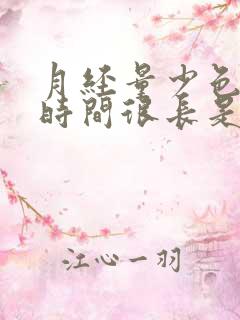 月经量少色
時間很長是
江心一羽